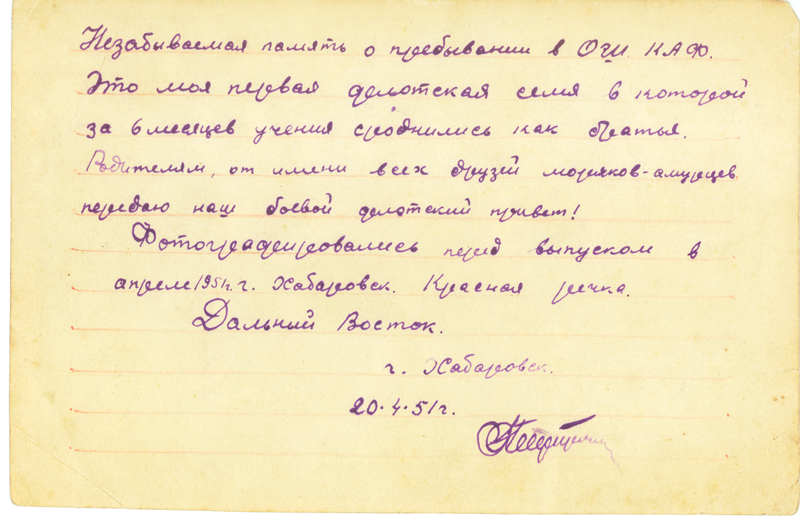 Незабываемая память о пребывании в ОУИ. КАФ.
Это моя первая флотская семя в которой
за 6 месяцев учения сроднились как братья.
Родителям, от имени всех друзей моряков-амурцев
передаю наш боевой флотский привет!
Фотографировались перед выпуском в
апреле 1951 г. Хабаровск. Красная речка.
Дальний Восток.
г. Хабаровск.
20.4.51г.